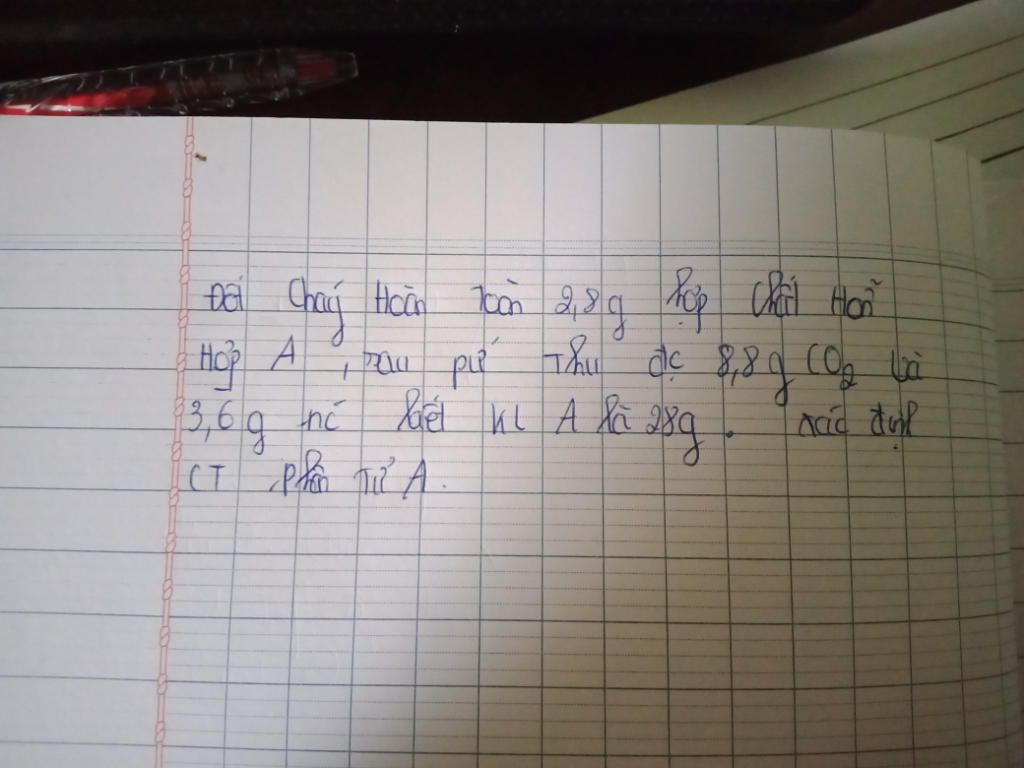 Đốt Cháy Hoàn toàn 2,8g hợp Chất Hoỗ
Hợp A , sau pứ Thu đc 8,8g CO2 và
3,6g nc biết KL A là 28g . xác định
CT phân Tử A.